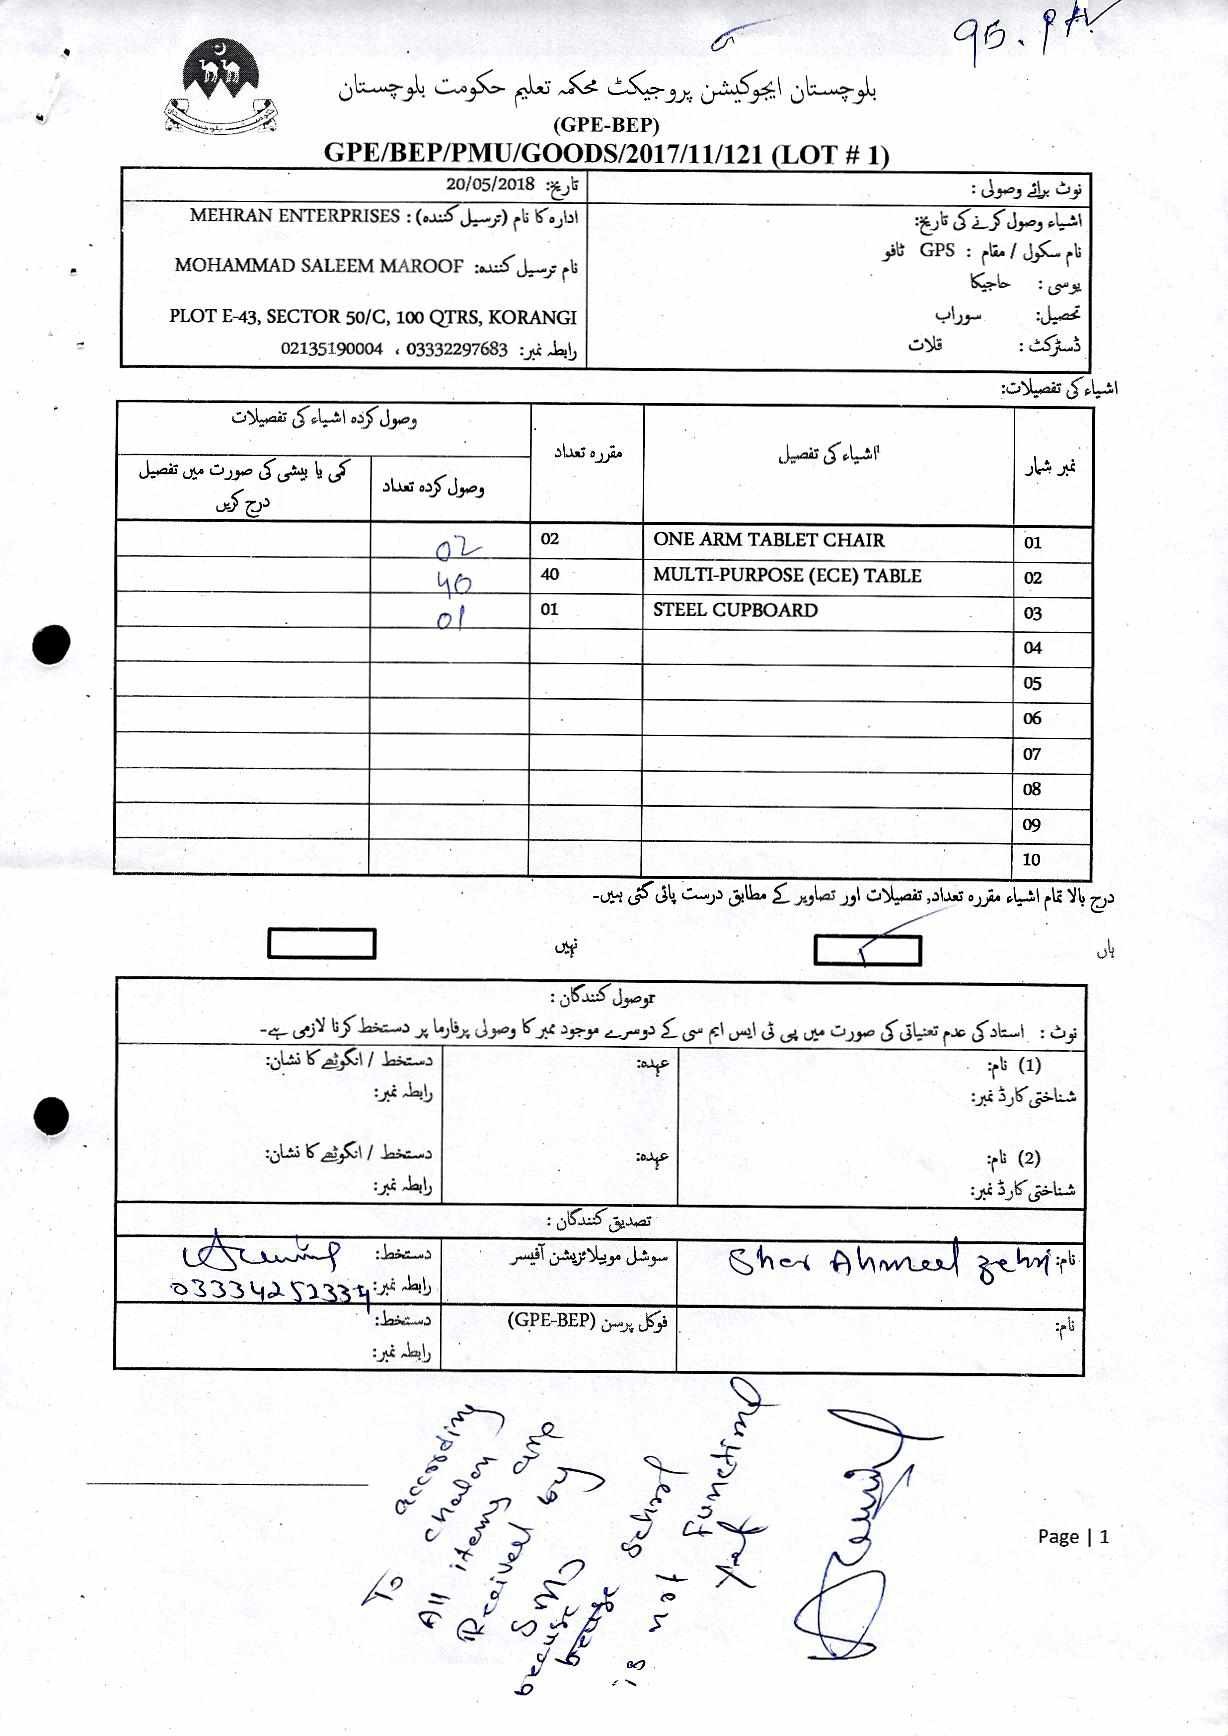 بلوچستان ایجوکیشن پروجیکٹ محکمہ تعلیم حکومت بلوچستان
(GPE-BEP)
GPE/BEP/PMU/GOODS/2017/11/121 (LOT # 1)
نوٹ برائے وصولی :
تاریخ: 20/05/2018
اشیاء وصول کرنے کی تاریخ:
ادارہ کا نام (ترسیل کنندہ) : MEHRAN ENTERPRISES
نام سکول / مقام : GPS ثافو
نام ترسیل کنندہ: MOHAMMAD SALEEM MAROOF
یوسی : حاجیکا
تحصیل: سوراب
PLOT E-43, SECTOR 50/C, 100 QTRS, KORANGI
ڈسٹرکٹ : قلات
رابطہ نمبر: 03332297683 ، 02135190004
اشیاء کی تفصیلات:
نمبر شمار
اشیاء کی تفصیل
مقررہ تعداد
وصول کردہ اشیاء کی تفصیلات
وصول کردہ تعداد
کمی یا بیشی کی صورت میں تفصیل درج کریں
01 ONE ARM TABLET CHAIR 02 02
02 MULTI-PURPOSE (ECE) TABLE 40 40
03 STEEL CUPBOARD 01 01
04
05
06
07
08
09
10
درج بالا تمام اشیاء مقررہ تعداد, تفصیلات اور تصاویر کے مطابق درست پائی گئی ہیں۔
ہاں
نہیں
وصول کنندگان :
نوٹ : استاد کی عدم تعنیاتی کی صورت میں پی ٹی ایس ایم سی کے دوسرے موجود ممبر کا وصولی پرفارما پر دستخط کرنا لازمی ہے۔
(1) نام: عہدہ: دستخط / انگوٹھے کا نشان:
شناختی کارڈ نمبر: رابطہ نمبر:
(2) نام: عہدہ: دستخط / انگوٹھے کا نشان:
شناختی کارڈ نمبر: رابطہ نمبر:
تصدیق کنندگان :
نام: Sher Ahmed Zehri سوشل موبیلائزیشن آفیسر دستخط:
رابطہ نمبر: 03334252334
نام: فوکل پرسن (GPE-BEP) دستخط:
رابطہ نمبر:
To according
chalan
All items are
Received by
SMC
becuse
school
is not
functional
yet
Page | 1